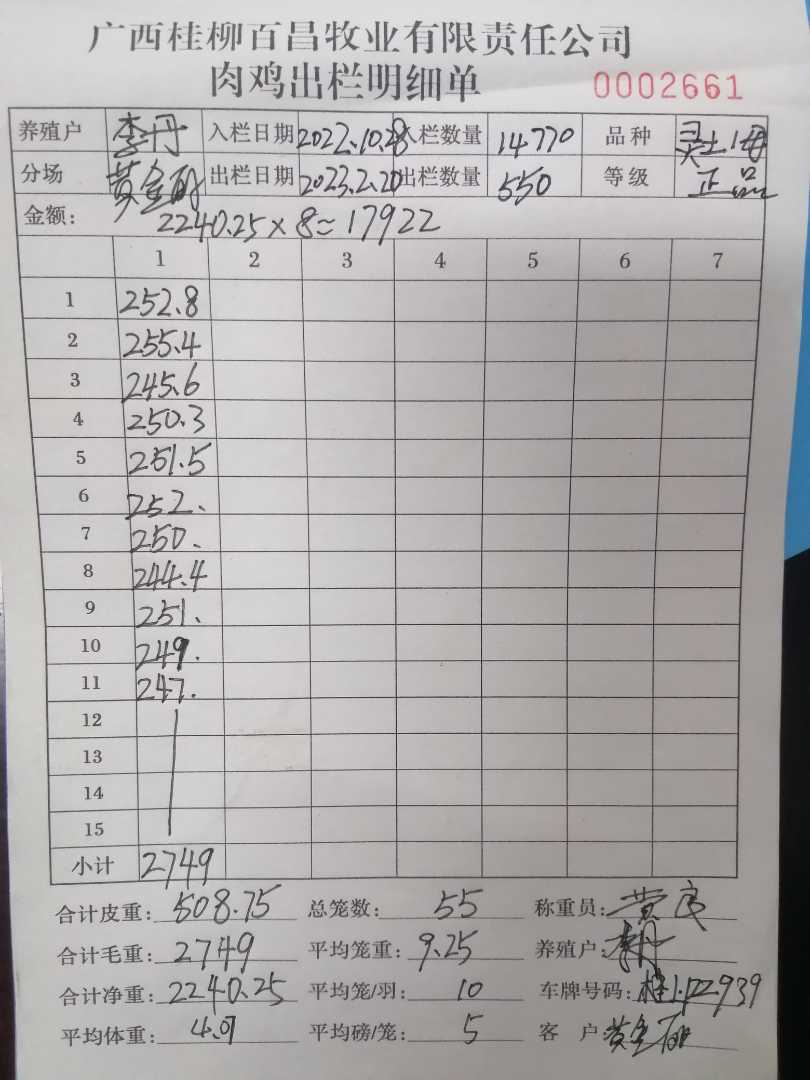 广西桂柳百昌牧业有限责任公司
肉鸡出栏明细单 0002661
养殖户 李丹 入栏日期 2022.10.28 入栏数量 14770 品种 灵土1母
分场 出栏日期 2023.2.20 出栏数量 550 等级 正品
金额: 2240.25×8≈17922
1 2 3 4 5 6 7
1 252.8
2 255.4
3 245.6
4 250.3
5 251.5
6 252.
7 250.
8 244.4
9 251.
10 249.
11 247.
12
13
14
15
小计 2749
合计皮重: 508.75 总笼数: 55 称重员: 黄
合计毛重: 2749 平均笼重: 9.25 养殖户: 李丹
合计净重: 2240.25 平均笼/羽: 10 车牌号码:
平均体重: 4.07 平均磅/笼: 5 客户